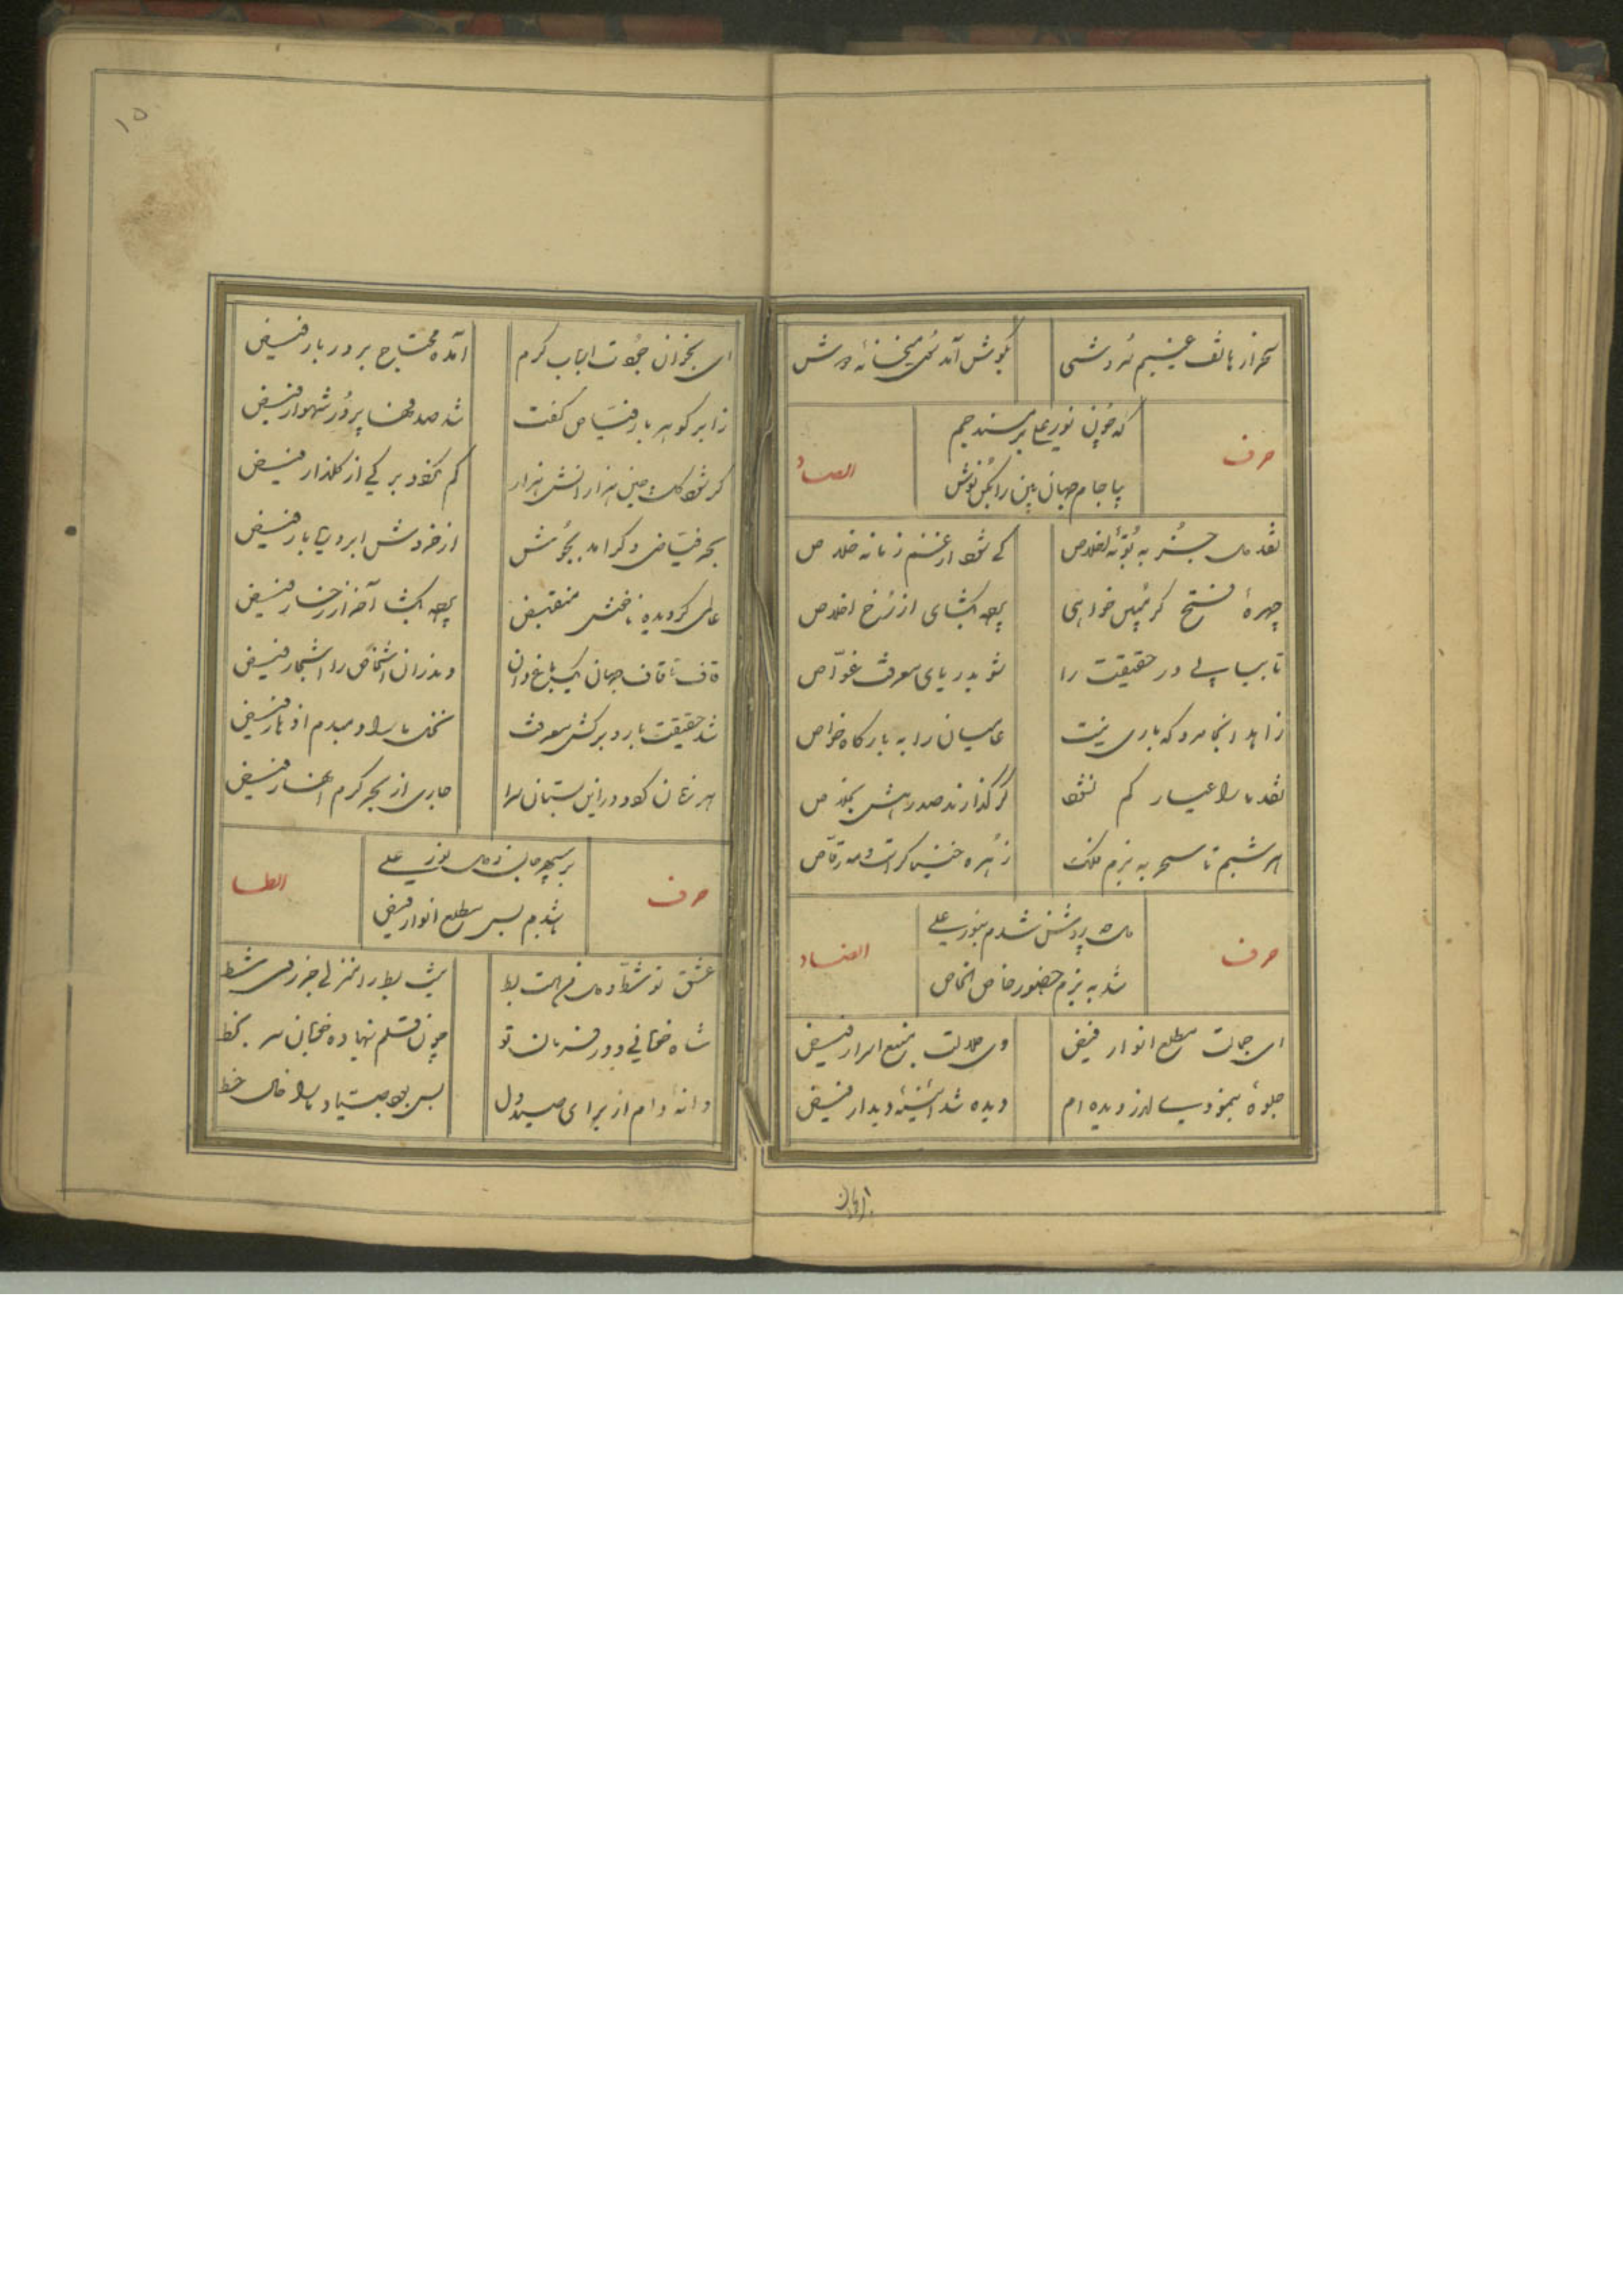 سحر از هاتف غیبیم سروشی
بگوش آمد که می خانه
حرف
که چون نور علی بر مسند جم
بیا جام جهان بین را بکن نوش
الصاد
نقد به بوته اخلاص
کی شود از غم زمانه خلاص
چهرهٔ فتح کر خواهی
بکشای از رخ اخلاص
تا بیابی در حقیقت را
شو بدریای معرفت غواص
زاهد اینجا مرو که باری نیست
عامیان را به بارگاه خواص
نقد ما را عیار کم نشود
گر گذارند صد رهش بخلاص
هر شبم تا سحر به بزم ملک
زهره خنیاگر است و مه رقاص
حرف
روشن شدم بنور علی
شد به بزم حضور خاص الخاص
الضاد
ای جمالت مطلع انوار فیض
وی جلالت منبع اسرار فیض
جلوهٔ بنمودی از دیده ام
دیده شد آئینهٔ دیدار فیض
ای بخوان جودت ارباب کرم
آمده محتاج بر دربار فیض
ز ابر گوهر بار فیاض کفت
شد صدفها پر در شهوار فیض
گر شود گلچین هزار اندر هزار
کم نگردد برگی از گلزار فیض
بحر فیاضی دگر آمد بجوش
از خروش ابر دریا بار فیض
منقبض
آخر از رخسار فیض
قاف تا قاف جهان یک باغ دان
وندران اشخاص را اشجار فیض
شد حقیقت بار و برگش معرفت
نخل ما را دمبدم از بار فیض
هر زمان گردد در این بستان سرا
جاری از بحر کرم انهار فیض
حرف
بر سپهر جان و دل نور علی
شد بس مطلع انوار فیض
الطا
عشق تو
شاه خوبانی و در فرمان تو
چون قلم بنهاده خوبان سر بخط
دانه و دام از برای صید دل
بس بود صیاد ما را خال و خط